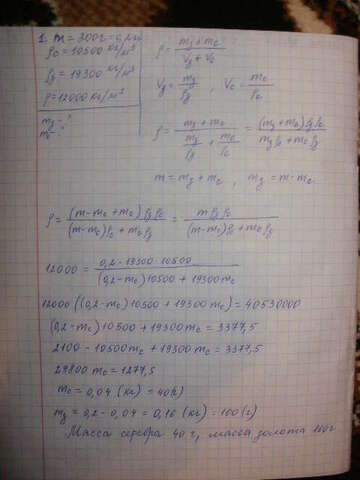 1. m = 200г = 0,2 кг
ρс = 10500 кг/м³
ρз = 19300 кг/м³
ρ = 12000 кг/м³
mз - ?
mс - ?
ρ = (mз + mс) / (Vз + Vс)
Vз = mз/ρз , Vс = mс/ρс
ρ = (mз + mс) / (mз/ρз + mс/ρс) = (mз + mс) ρз ρс / (mз ρс + mс ρз)
m = mз + mс , mз = m - mс
ρ = (m - mс + mс) ρз ρс / ((m - mс) ρс + mс ρз) = m ρз ρс / ((m - mс) ρс + mс ρз)
12000 = 0,2 · 19300 · 10500 / ((0,2 - mс) 10500 + 19300 mс)
12000 ((0,2 - mс) 10500 + 19300 mс) = 40530000
(0,2 - mс) 10500 + 19300 mс = 3377,5
2100 - 10500 mс + 19300 mс = 3377,5
29800 mс = 1277,5
mс = 0,04 (кг) = 40 (г)
mз = 0,2 - 0,04 = 0,16 (кг) = 160 (г)
Масса серебра 40 г, масса золота 160 г